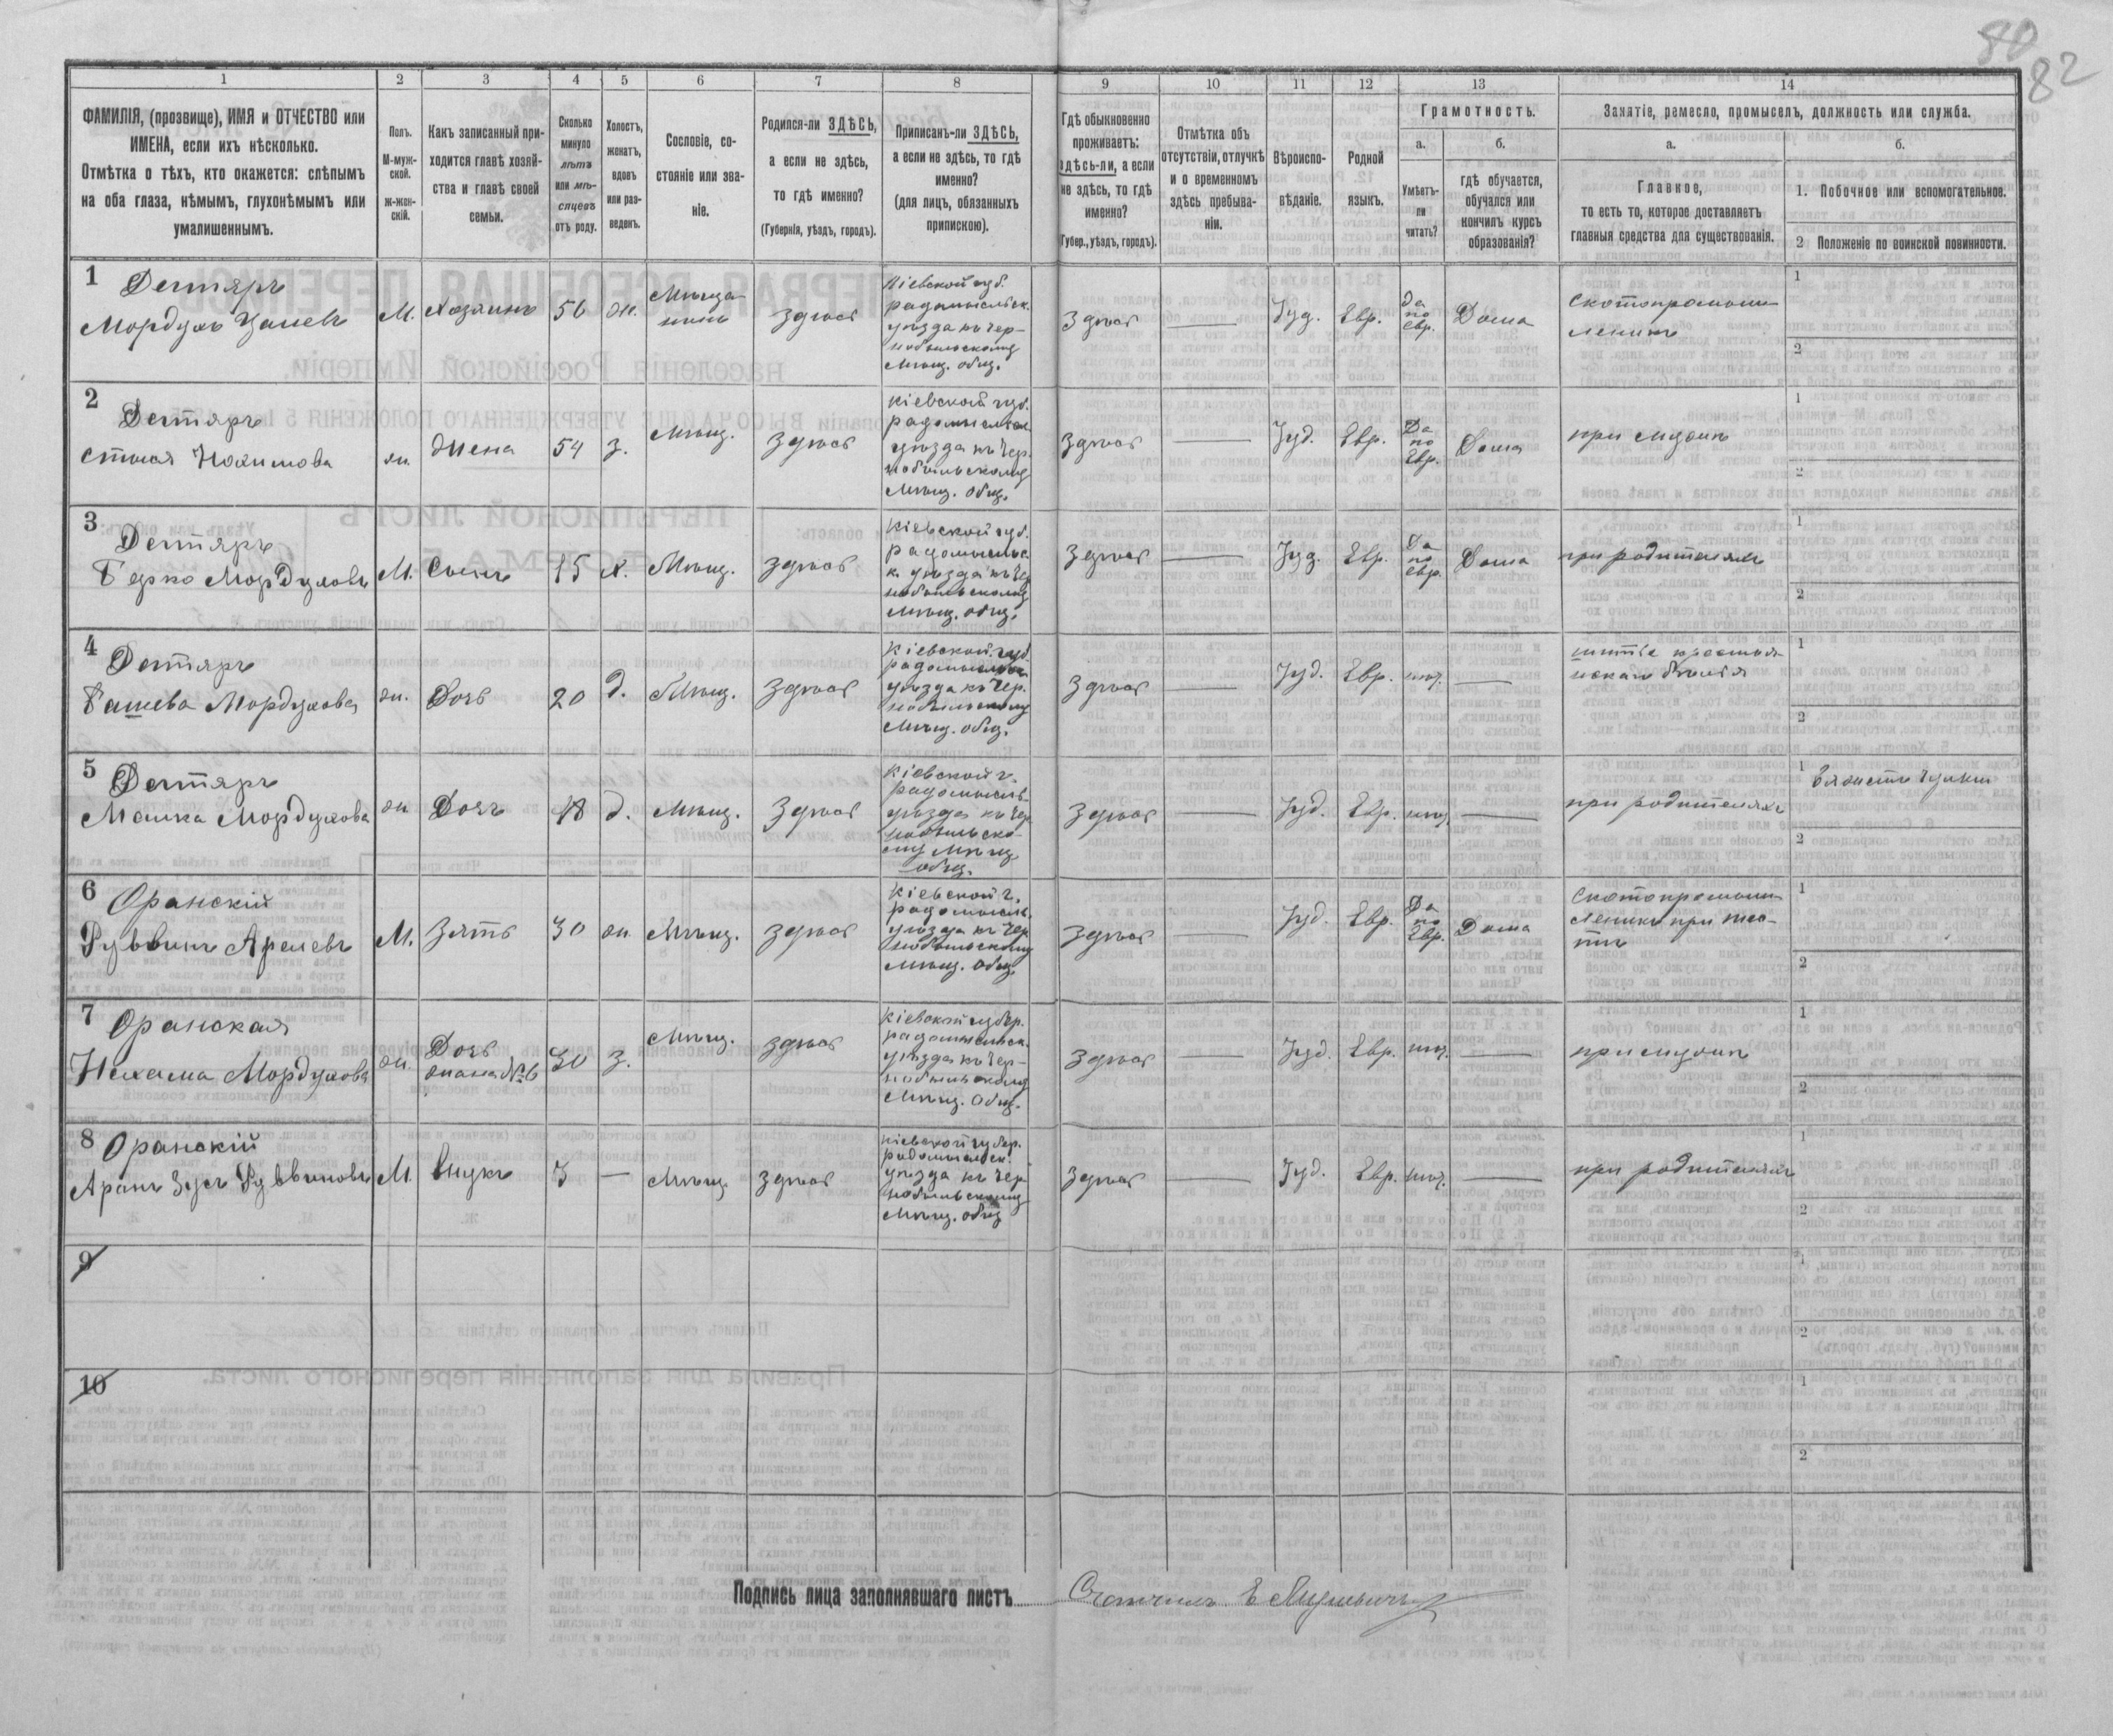 80
82
1
2
3
4
5
6
7
8
9
10
11
12
13
14
ФАМИЛІЯ, (прозвище), ИМЯ и ОТЧЕСТВО или
ИМЕНА, если ихъ нѣсколько.
Отмѣтка о тѣхъ, кто окажется: слѣпымъ
на оба глаза, нѣмымъ, глухонѣмымъ или
умалишеннымъ.
Полъ.
М-муж-
ской.
Ж-жен-
скій.
Какъ записанный при-
ходится главѣ хозяй-
ства и главѣ своей
семьи.
Сколько
минуло
лѣтъ
или мѣ-
сяцевъ
отъ роду.
Холостъ,
женатъ,
вдовъ
или раз-
веденъ.
Сословіе, со-
стояніе или зва-
ніе.
Родился-ли ЗДѢСЬ,
а если не здѣсь,
то гдѣ именно?
(Губернія, уѣздъ, городъ).
Приписанъ-ли ЗДѢСЬ,
а если не здѣсь, то гдѣ
именно?
(для лицъ, обязанныхъ
припискою).
Гдѣ обыкновенно
проживаетъ:
здѣсь-ли, а если
не здѣсь, то гдѣ
именно?
(Губер., уѣздъ, городъ).
Отмѣтка объ
отсутствіи, отлучкѣ
и о временномъ
здѣсь пребыва-
ніи.
Вѣроиспо-
вѣданіе.
Родной
языкъ.
Грамотность.
а.
Умѣетъ-
ли
читать?
б.
гдѣ обучается,
обучался или
кончилъ курсъ
образованія?
Занятіе, ремесло, промыселъ, должность или служба.
а.
Главное,
то есть то, которое доставляетъ
главныя средства для существованія.
б.
1. Побочное или вспомогательное.
2 Положеніе по воинской повинности.
1 Дегтяръ
Мордухъ
М. Хозяинъ 56 ж. Мѣща-
нинъ
здѣсь
Кіевской губ.
радомысльск.
уѣзда къ Чер-
нобыльскому
Мѣщ. общ.
здѣсь — Іуд. Евр. да
по
евр.
Дома
скотопромыш-
леникъ
1
2
2 Дегтяръ
Нохимова
ж. Жена 54 з. Мѣщ. здѣсь
Кіевской губ.
радомысльск
уѣзда къ Чер.
нобыльскому
Мѣщ. общ.
здѣсь — Іуд. Евр. Да
по
Евр.
Дома
при мужѣ
1
2
3 Дегтяръ
Берко Мордуховъ
М. Сынъ 15 х. Мѣщ. здѣсь
Кіевской губ.
радомысльс.
к. уѣзда къ Чер
нобыльскому
Мѣщ. общ.
здѣсь — Іуд. Евр. Да
по
евр.
Дома
при родителяхъ
1
2
4 Дегтяръ
Башева Мордухова
ж. Дочь 20 д. Мѣщ. здѣсь
Кіевской губ.
радомысльск
уѣзда къ Чер.
нобыльскому
Мѣщ. общ.
здѣсь — Іуд. Евр. нѣт. —
шитье
1
2
5 Дегтяръ
Малка Мордухова
ж Дочь 18 д. Мѣщ. здѣсь
Кіевской г.
радомысль-
уѣзда къ Чер
нобыльско-
му Мѣщ.
общ.
здѣсь — Іуд. Евр. нѣт. —
при родителяхъ
1 Вяжетъ чулки
2
6 Оранскій
Рувинъ Арелевъ
М. Зять 30 ж. Мѣщ. здѣсь
Кіевской г.
радомысль.
уѣзда къ Чер
нобыльскому
Мѣщ. общ.
здѣсь — Іуд. Евр. Да
по
Евр.
Дома
Скотопромыш-
леникъ при тес-
тѣ
1
2
7 Оранская
Нехама Мордухова
ж. Дочь
жена № 6
30 з. Мѣщ. здѣсь
Кіевской губер.
радомысльск.
уѣзда къ Чер-
нобыльскому
Мѣщ. общ.
здѣсь — Іуд. Евр. нѣт. —
при мужѣ
1
2
8 Оранскій
Аронъ Зусъ Рувиновъ
М. Внукъ 3 — Мѣщ. здѣсь
Кіевской губер.
радомысльск.
уѣзда къ Чер
нобыльскому
Мѣщ. общ
здѣсь — Іуд. Евр. нѣт. —
при родителяхъ
1
2
9
1
2
10
1
2
Подпись лица заполнявшаго листъ Счетчикъ